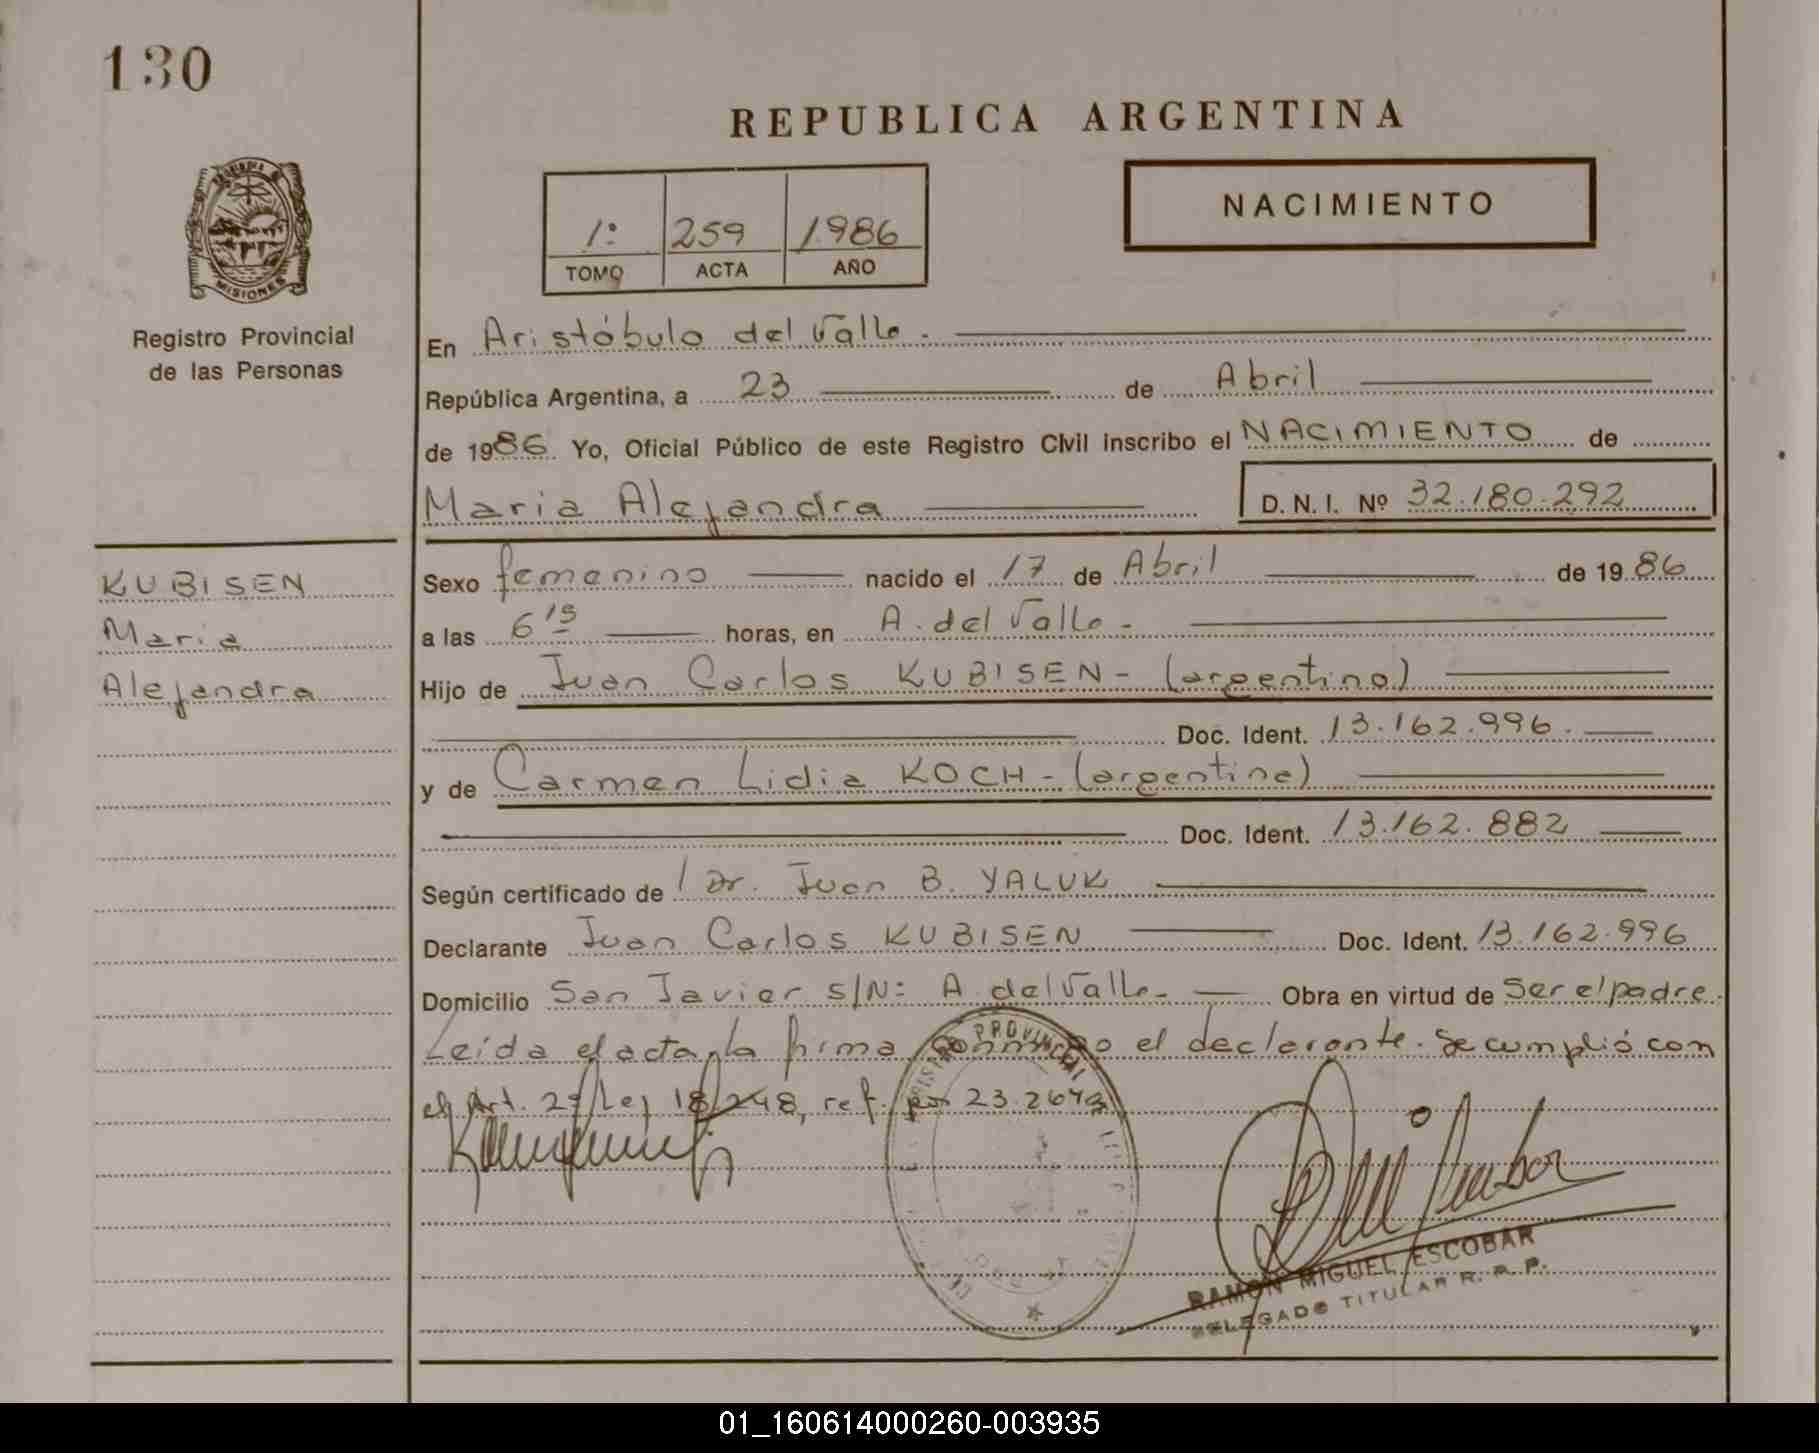 130
REPUBLICA ARGENTINA
NACIMIENTO
1º 259 1986
TOMO ACTA AÑO
PROVINCIA DE
MISIONES
Registro Provincial
de las Personas
En Aristóbulo del Valle.
República Argentina, a 23 de Abril
de 1986. Yo, Oficial Público de este Registro Civil inscribo el NACIMIENTO de
Maria Alejandra D. N. I. Nº 32.180.292
KUBISEN
Maria
Alejandra
Sexo femenino nacido el 17 de Abril de 1986
a las 6 15 horas, en A. del Valle.
Hijo de Juan Carlos KUBISEN - (argentino)
Doc. Ident. 13.162.996.
y de Carmen Lidia KOCH - (argentina)
Doc. Ident. 13.162.882
Según certificado de Dr. Juan B. YALUK
Declarante Juan Carlos KUBISEN Doc. Ident. 13.162.996
Domicilio San Javier S/N: A del Valle. Obra en virtud de Ser el padre.
Leída el acta, la firma conmigo el declarante. Se cumplió con
el Art. 2º Ley 18.248, ref. por 23.264
REGISTRO PROVINCIAL
RAMON MIGUEL ESCOBAR
DELEGADO TITULAR R. P. P.
01_160614000260-003935